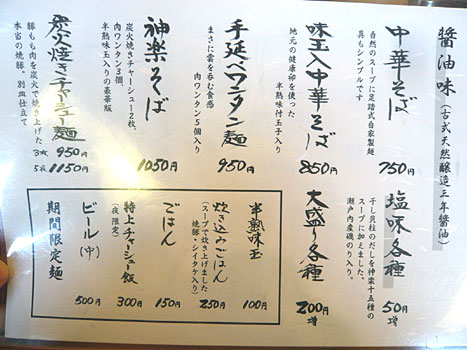 醤油味（古式天然醸造三年醤油）
中華そば
自然のスープに足踏式自家製麺
具もシンプルです
750円
味玉入中華そば
地元の健康卵を使った
半熟味付玉子入り
850円
手延べワンタン麺
まさに雲を呑む食感
肉ワンタン5個入り
950円
神楽そば
炭火焼きチャーシュー2枚、
肉ワンタン3個、
半熟味玉入りの豪華版
1050円
炭火焼きチャーシュー麺
豚もも肉を炭火で焼き上げた
本当の焼豚。別皿仕立て
3枚 950円
5枚 1150円
塩味各種
干し貝柱のだしを神楽十五種の
スープに加えました。
瀬戸内産磯のり入り。
50円増
大盛り各種
200円増
半熟味玉
100円
炊き込みごはん
（スープで炊き上げました
焼豚・シイタケ入り）
250円
ごはん
150円
特上チャーシュー飯
（夜限定）
300円
ビール（中）
500円
期間限定麺